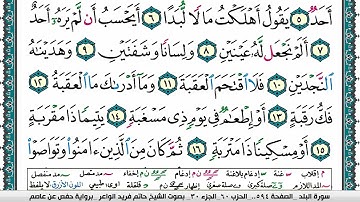 أَحَدٌ ٥ يَقُولُ أَهْلَكْتُ مَالًا لُّبَدًا ٦ أَيَحْسَبُ أَن لَّمْ يَرَهُۥٓ أَحَدٌ
٧ أَلَمْ نَجْعَل لَّهُۥ عَيْنَيْنِ ٨ وَلِسَانًا وَشَفَتَيْنِ ٩ وَهَدَيْنَٰهُ
ٱلنَّجْدَيْنِ ١٠ فَلَا ٱقْتَحَمَ ٱلْعَقَبَةَ ١١ وَمَآ أَدْرَىٰكَ مَا ٱلْعَقَبَةُ ١٢
فَكُّ رَقَبَةٍ ١٣ أَوْ إِطْعَٰمٌ فِى يَوْمٍ ذِى مَسْغَبَةٍ ١٤ يَتِيمًا ذَا مَقْرَبَةٍ
١٥ أَوْ مِسْكِينًا ذَا مَتْرَبَةٍ ١٦ ثُمَّ كَانَ مِنَ ٱلَّذِينَ ءَامَنُوا۟ وَتَوَاصَوْا۟
سورة البلد - الصفحة ٥٩٤ - الحزب ٦٠ - الجزء ٣٠ - بصوت الشيخ حاتم فريد الواعر - برواية حفص عن عاصم